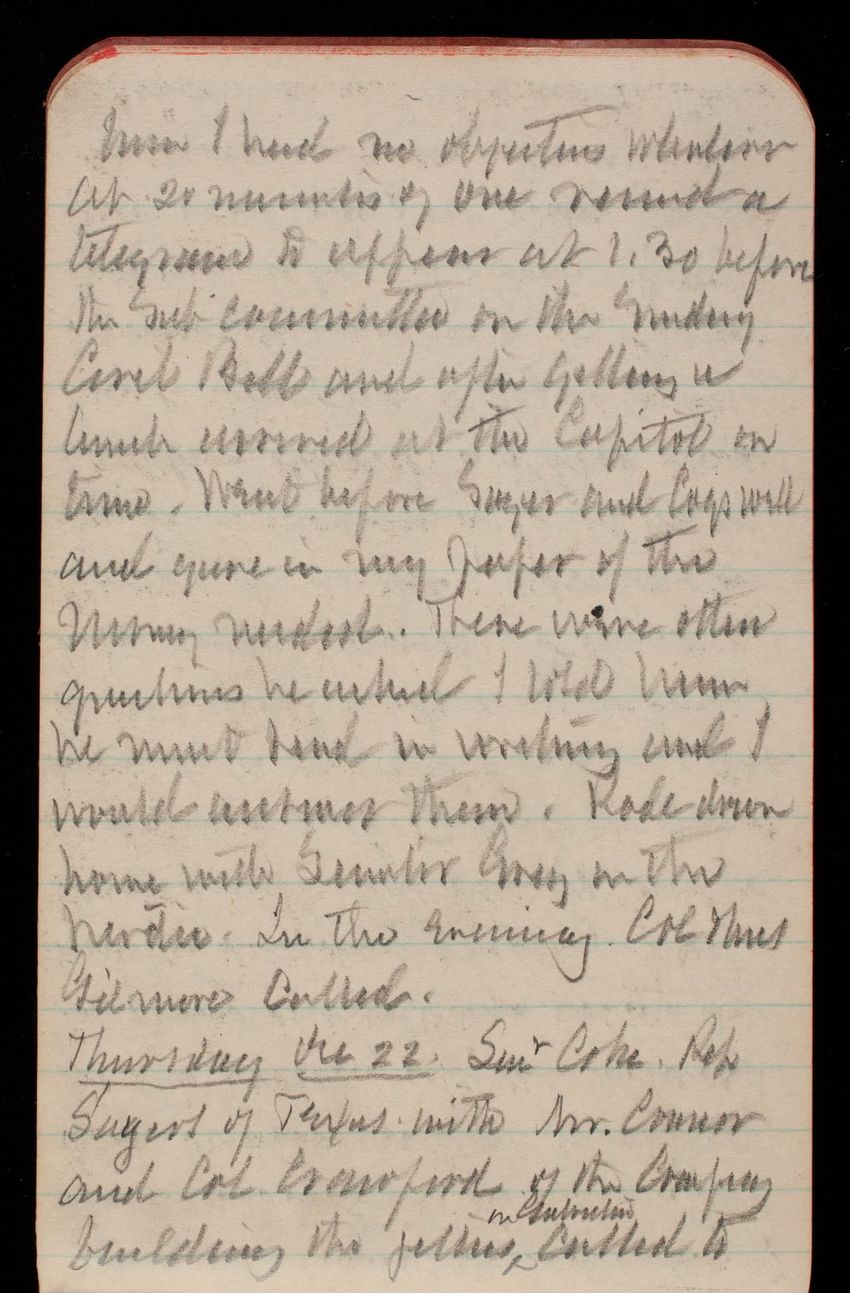 him I had no objections whatever
At 20 minutes of one received a
telegram to appear at 1.30 before
the Sub committee on the Sundry
Civil Bill and after getting a
lunch arrived at the Capitol on
time. Went before Sayers and Cogswell
and gave in my paper of the
Money needed. There were other
questions he asked I told him
he must send in writing and I
would answer them. Rode down
home with Senator Gray in the
herdic. In the evening Col &
Gilmore Called.
Thursday Dec 22. Senr Coke. Rep
Sayers of Texas with Mr. Connor
and Col Crawford of the Company
building the jetties, Called to